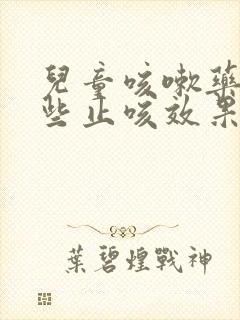 兒童咳嗽藥
些止咳效果
葉碧煌戰神